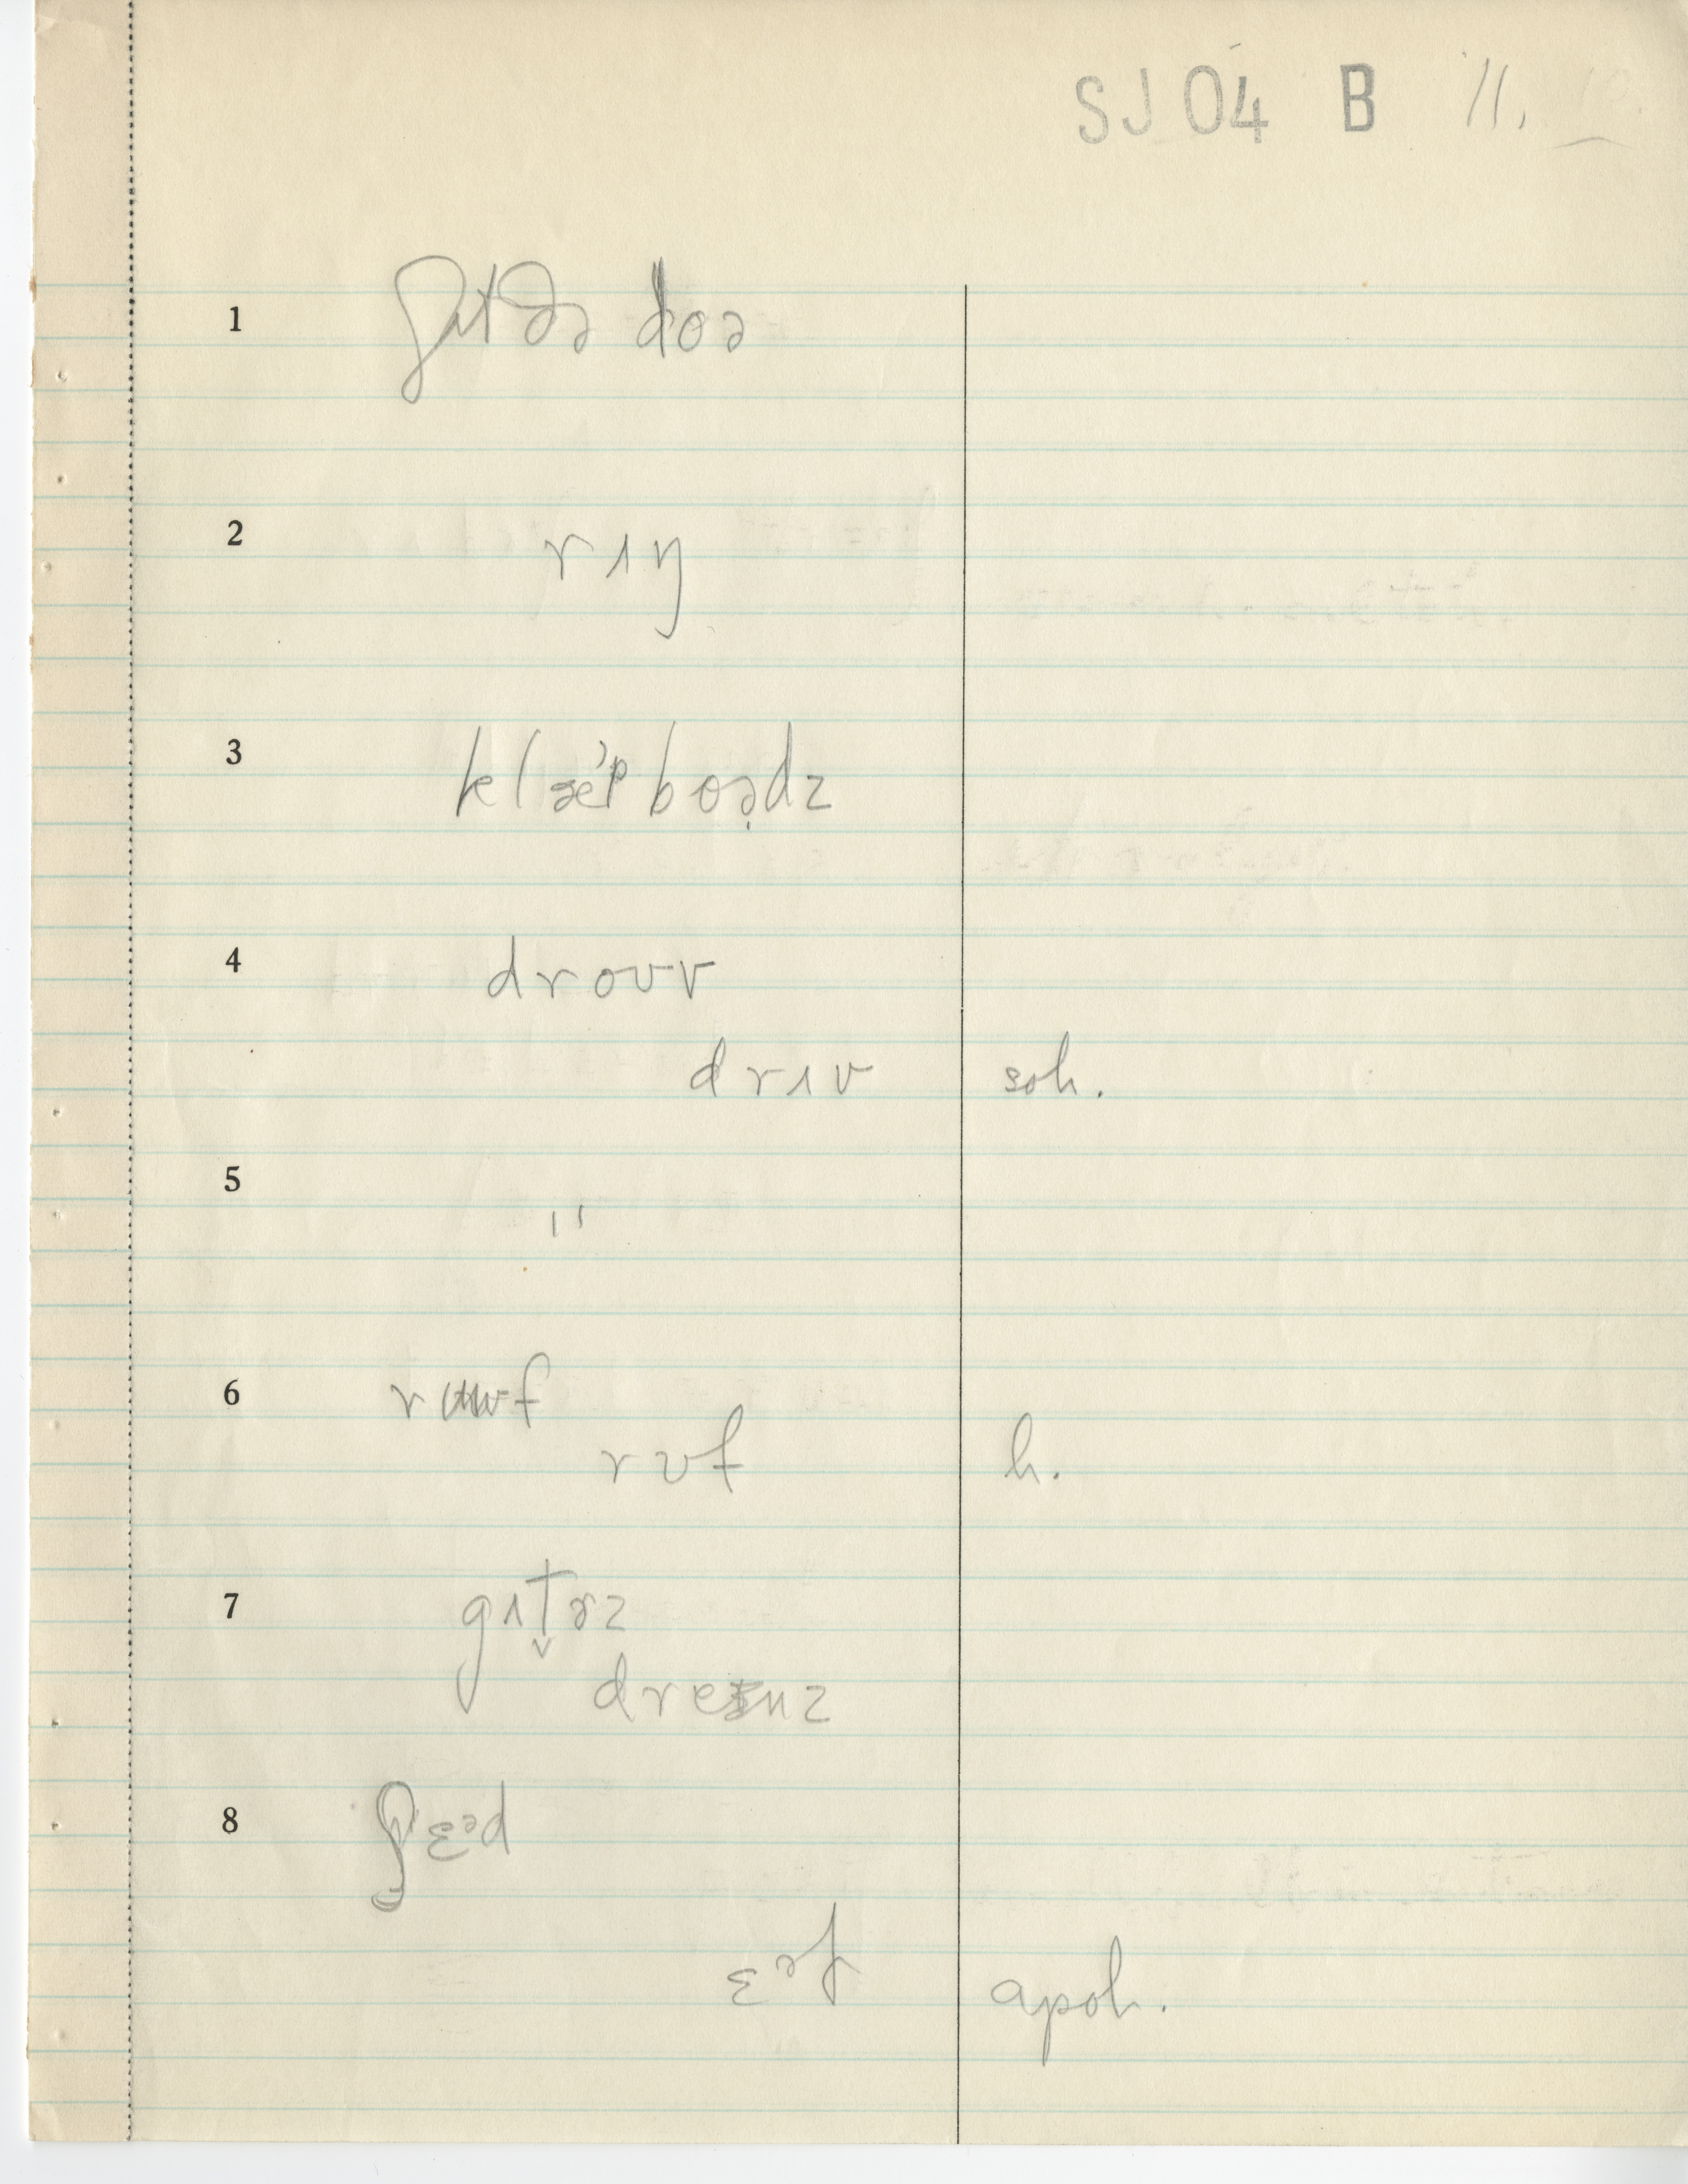 SJ04 B 11.
1 ʃɪtðə doə
2 rɪŋ
3 klæpboə̣dz
4 droʊv
drɪv | soh.
5 "
6 ruf
rʊf | h.
7 gʌt̬ɚz
dreɪnz
8 ʃɛəd
apoh.